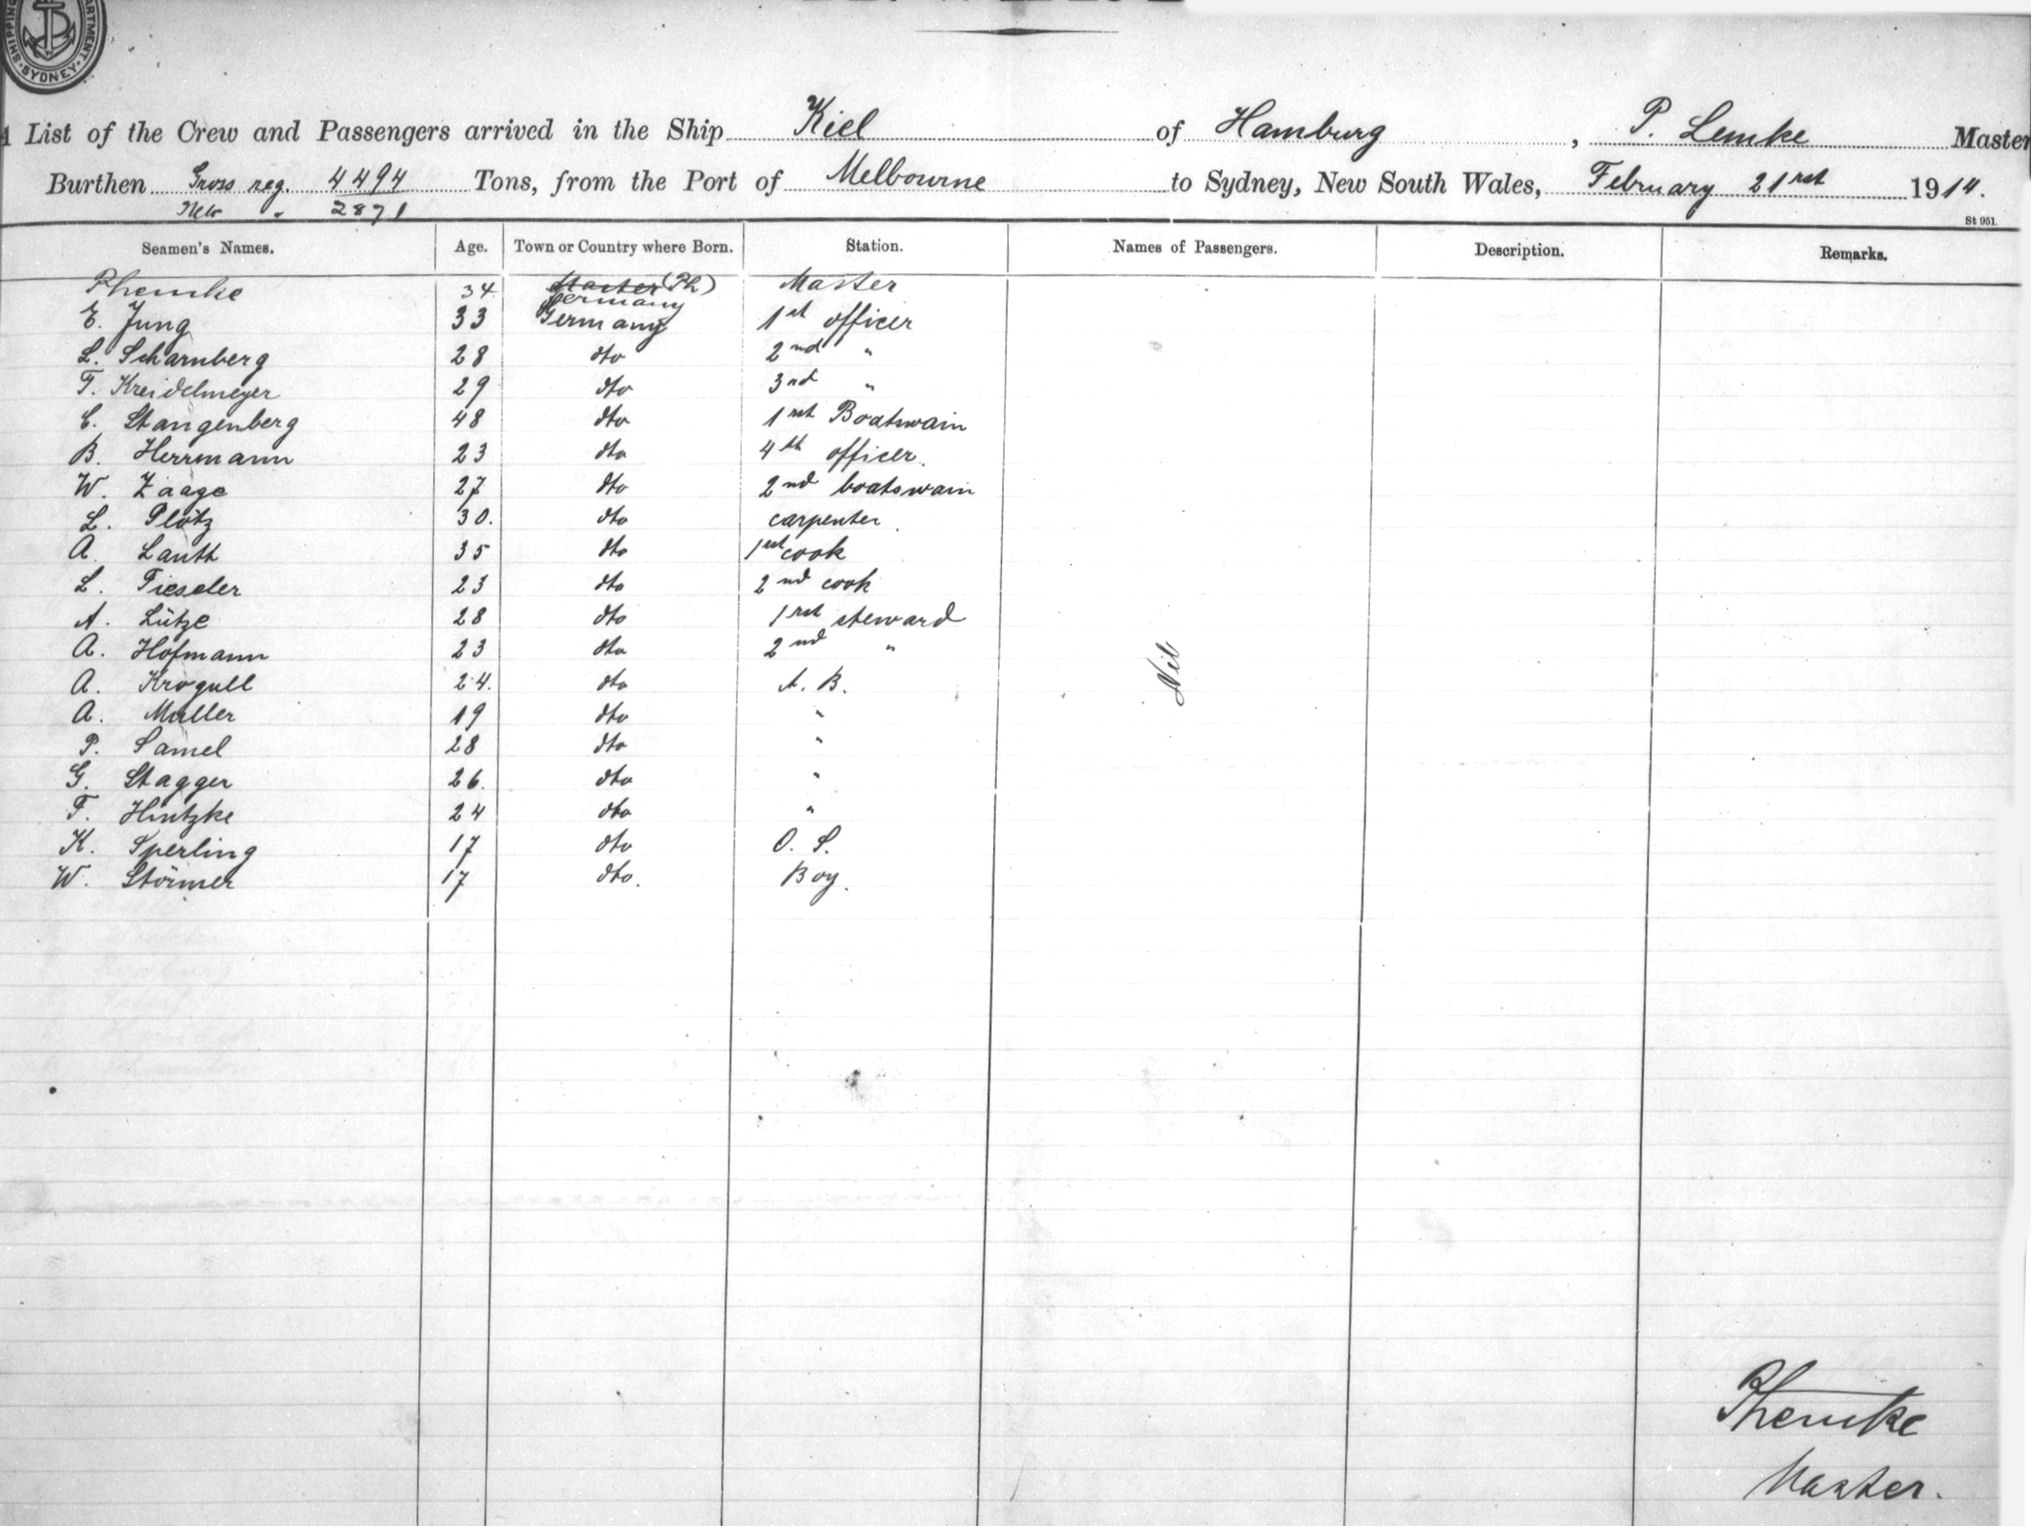 SHIPPING DEPARTMENT SYDNEY
A List of the Crew and Passengers arrived in the Ship Kiel of Hamburg, P. Lemke Master
Burthen Gross reg. 4494 Tons, from the Port of Melbourne to Sydney, New South Wales, February 21rst 1914.
Nett " 2871
St 951.
Seamen's Names. Age. Town or Country where Born. Station. Names of Passengers. Description. Remarks.
PLemke 34 Master (PL) Master
Germany
E. Jung 33 Germany 1st officer
L. Scharnberg 28 dto 2nd "
F. Kreidelmeyer 29 dto 3rd "
C. Stangenberg 48 dto 1rst Boatswain
B. Herrmann 23 dto 4th officer.
W. Zaage 27 dto 2nd boatswain
L. Plötz 30. dto carpenter.
A. Lauth 35 dto 1rst cook
L. Fieseler 23 dto 2nd cook
A. Lütze 28 dto 1rst steward
A. Hofmann 23 dto 2nd "
A. Krogull 24. dto A. B. Nil
A. Müller 19 dto "
P. Samel 28 dto "
G. Stagger 26. dto "
F. Hintzke 24 dto "
K. Sperling 17 dto O. S.
W. Störmer 17 dto. Boy.
PLemke
Master.